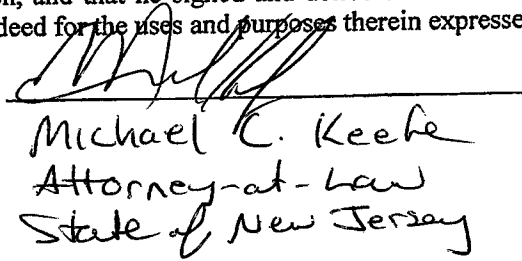 on, and that he signed and
deed for the uses and purposes therein expresse
Michael C. Keefe
Attorney-at-Law
State of New Jersey